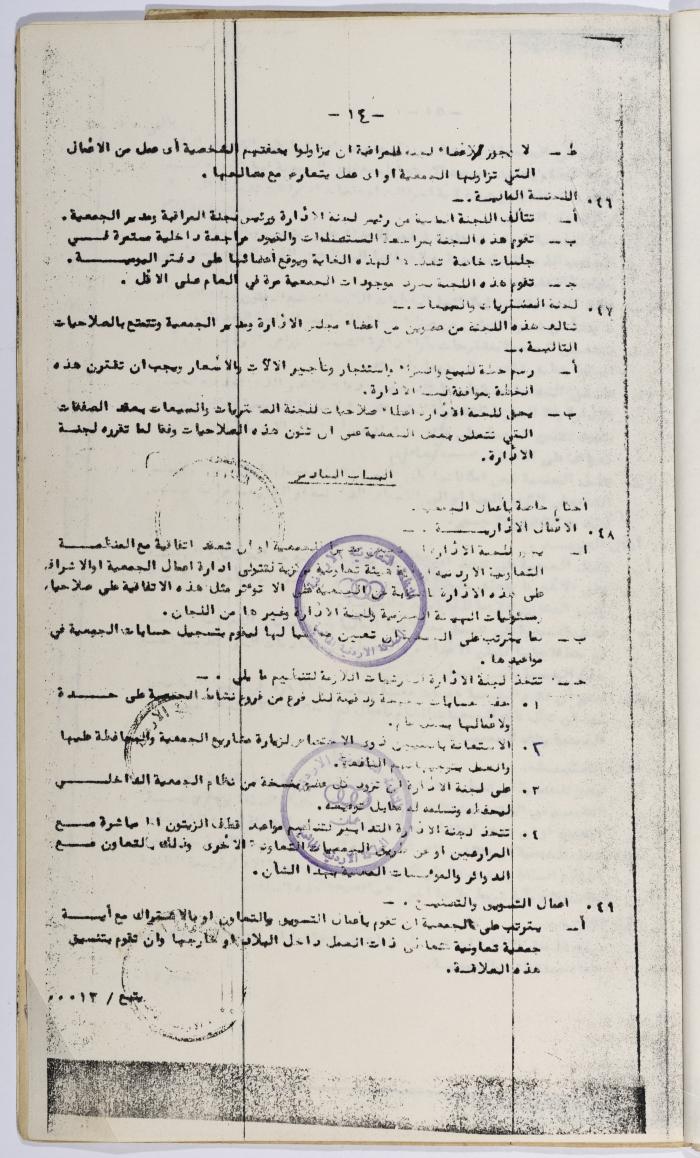 - ١٤ -
ط - لا يجوز لأعضاء لجنة المراقبة ان يزاولوا بصفتهم الشخصية أى عمل من الأعمال
التي تزاولها الجمعية او اى عمل يتعارض مع مصالحها .
٤٦. اللجنة المالية . -
أ - تتألف اللجنة المالية من رئيس لجنة الأدارة ورئيس لجنة المراقبة ومدير الجمعية .
ب - تقوم هذه اللجنة بمراجعة المستندات والقيود مراجعة داخلية مستمرة في
جلسات خاصة تعقدها لهذه الغاية ويوقع أعضائها على دفتر اليومية .
جـ - تقوم هذه اللجنة بجرد موجودات الجمعية مرة في العام على الاقل .
٤٧. لجنة المشتريات والمبيعات . -
تتألف هذه اللجنة من عضوين من اعضاء مجلس الادارة ومدير الجمعية وتتمتع بالصلاحيات
التالية . -
أ - رسم خطة للبيع والشراء واستئجار وتأجير الآلات والأسعار ويجب ان تقترن هذه
الخطة بموافقة لجنة الادارة .
ب - يحق للجنة الأدارة اعطاء صلاحيات للجنة المشتريات والمبيعات بعقد الصفقات
التي تتعلق بعمل الجمعية على ان تكون هذه الصلاحيات وفقا لما تقرره لجنة
الأدارة .
الباب السادس
أحكام خاصة بأعمال الجمعية .
٤٨. الاعمال الأدارية . -
أ - يجوز للجنة الأدارة ان تعين مديرا للجمعية او ان تعقد اتفاقية مع المنظمة
التعاونية الاردنية او هيئة تعاونية مركزية لتتولى ادارة اعمال الجمعية او الاشراف
على هذه الأدارة نيابة عن الجمعية على الا توثر مثل هذه الاتفاقية على صلاحيات
ومسئوليات الهيئة العمومية ولجنة الأدارة وغيرها من اللجان .
ب - كما يترتب على الجمعية ان تعين محاسبا لها ليقوم بتسجيل حسابات الجمعية في
مواعيدها .
جـ - تتخذ لجنة الأدارة الترتيبات اللازمة لتنظيم ما يلي . -
١. حفظ حسابات صحيحة ودقيقة لكل فرع من فروع نشاط الجمعية على حدة
ولأعمالها بشكل عام .
٢. الاستعانة بالمعنيين ذوى الاختصاص لزيارة مشاريع الجمعية والمحافظة عليها
والعمل بتوجيهاتهم النافعة .
٣. على لجنة الأدارة ان تزود كل عضو بنسخة من نظام الجمعية الداخلي
ليحفظه وتسلمه له مقابل توقيعه .
٤. تتخذ لجنة الأدارة التدابير لتنظيم مواعيد قطف الزيتون اما مباشرة مع
المزارعين او عن طريق الجمعيات التعاونية الاخرى وذلك بالتعاون مع
الدوائر والمؤسسات المعنية بهذا الشأن .
٤٩. اعمال التسويق والتصنيع . -
أ - يترتب على الجمعية ان تقوم بأعمال التسويق والتعاون او بالاشتراك مع أية
جمعية تعاونية تتعاطى ذات العمل داخل البلاد او خارجها وان تقوم بتنسيق
هذه العلاقة .
يتبع / ١٣ ....